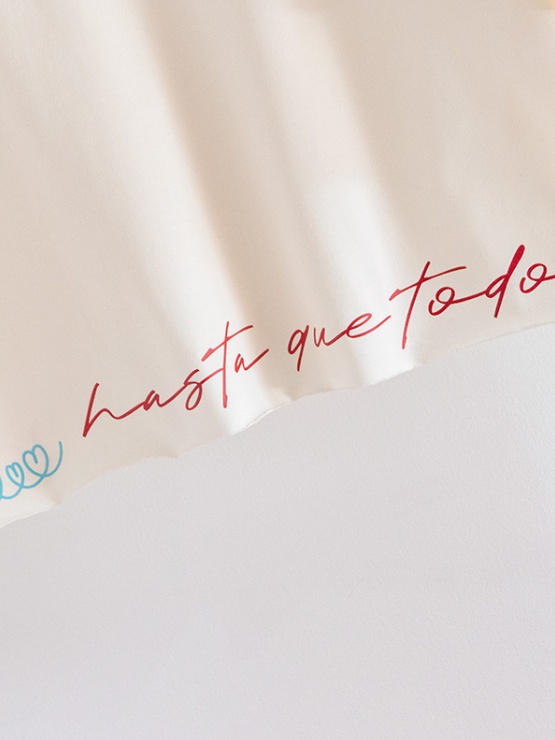 hasta que todo